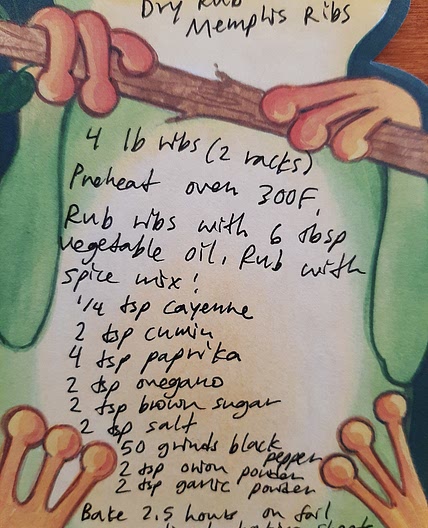 Dry Rub
Memphis Ribs
4 lb ribs (2 racks)
Preheat oven 300F.
Rub ribs with 6 tbsp
vegetable oil. Rub with
spice mix!
1/4 tsp cayenne
2 tsp cumin
4 tsp paprika
2 tsp oregano
2 tsp brown sugar
2 tsp salt
50 grinds black
pepper
2 tsp onion powder
2 tsp garlic powder
Bake 2.5 hours on foil